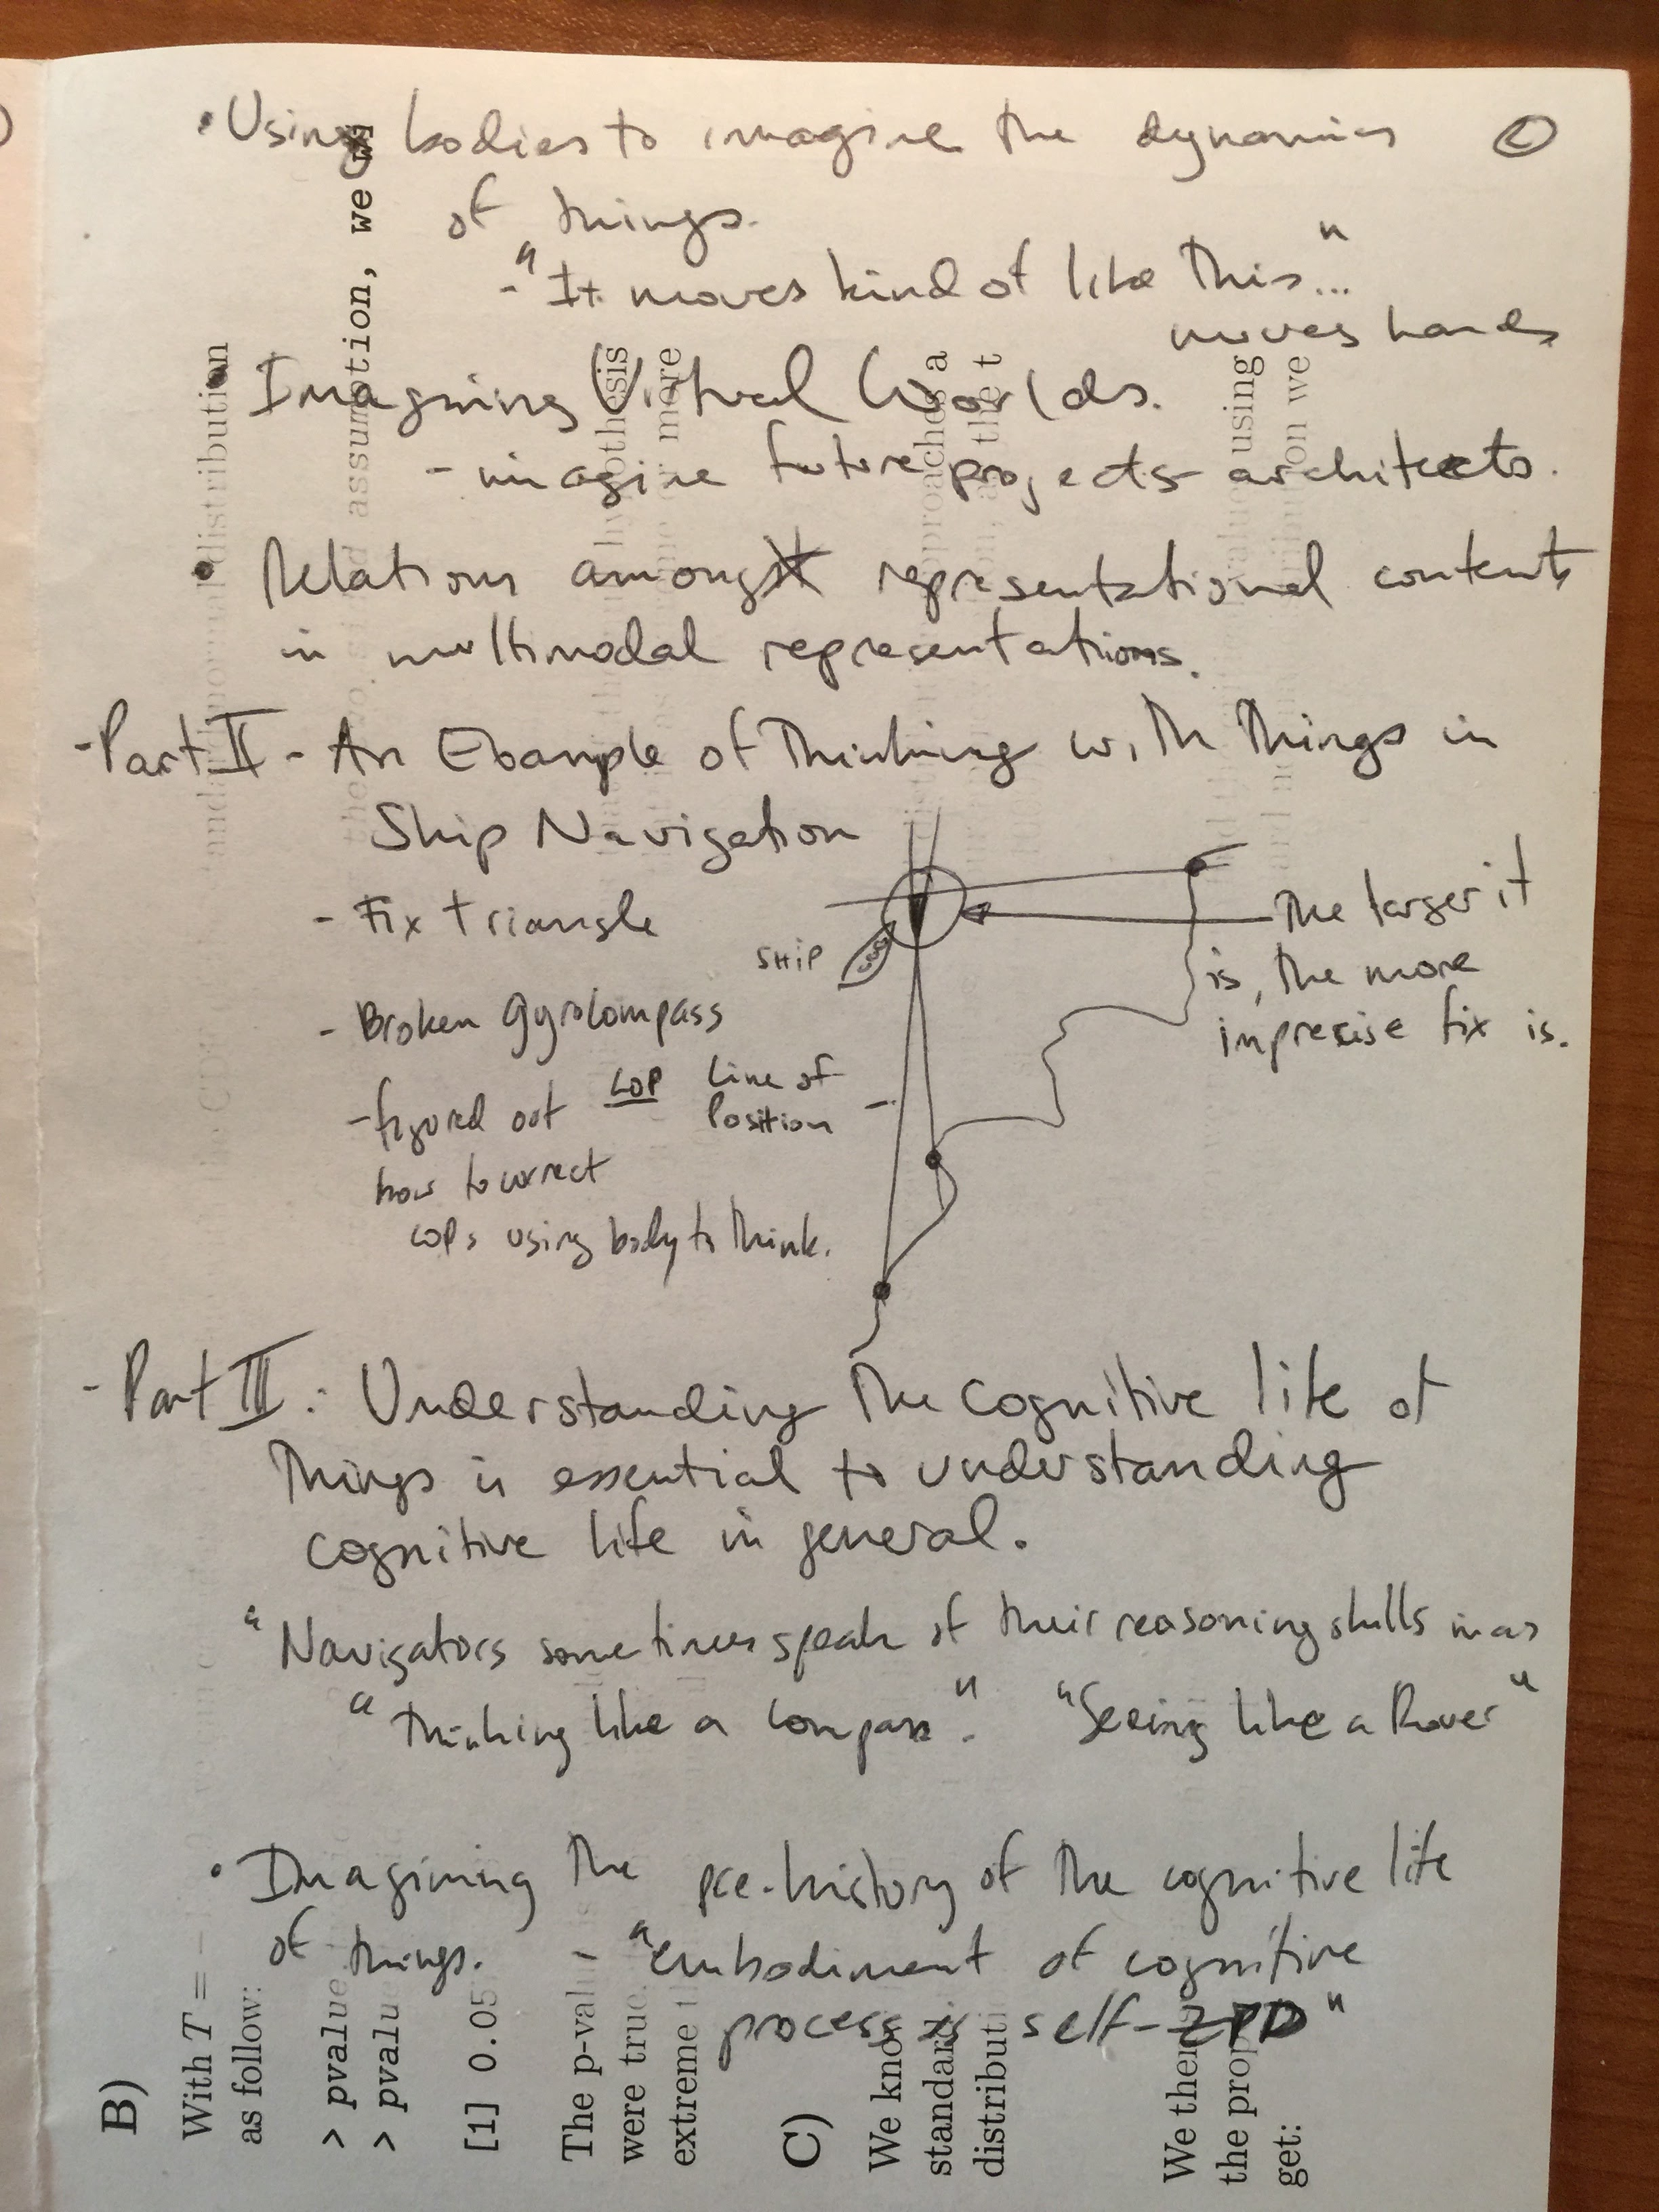 • Using bodies to imagine the dynamics
of things.
- "It moves kind of like this..."
moves hands
Imagining Virtual Worlds.
- imagine future projects - architects.
• Relations among representational contents
in multimodal representations.
- Part II - An Example of Thinking with Things in
Ship Navigation
- Fix triangle
SHIP
The larger it
is, the more
imprecise fix is.
- Broken gyrocompass
LOP Line of
Position -
- figured out
how to correct
LOPs using body to think.
- Part III: Understanding the cognitive life of
things is essential to understanding
cognitive life in general.
"Navigators sometimes speak of their reasoning skills as
"thinking like a compass". "Seeing like a Rover"
• Imagining the pre-history of the cognitive life
of things. - "embodiment of cognitive
process is self-ZPD"
distribution
assumption, we
hypothesis
more
a
the t
using
on we
B)
With T =
as follow:
> pvalue
> pvalu
[1] 0.05
The p-val
were true.
extreme t
C)
We kno
standard
distributi
We then
the prop
get: